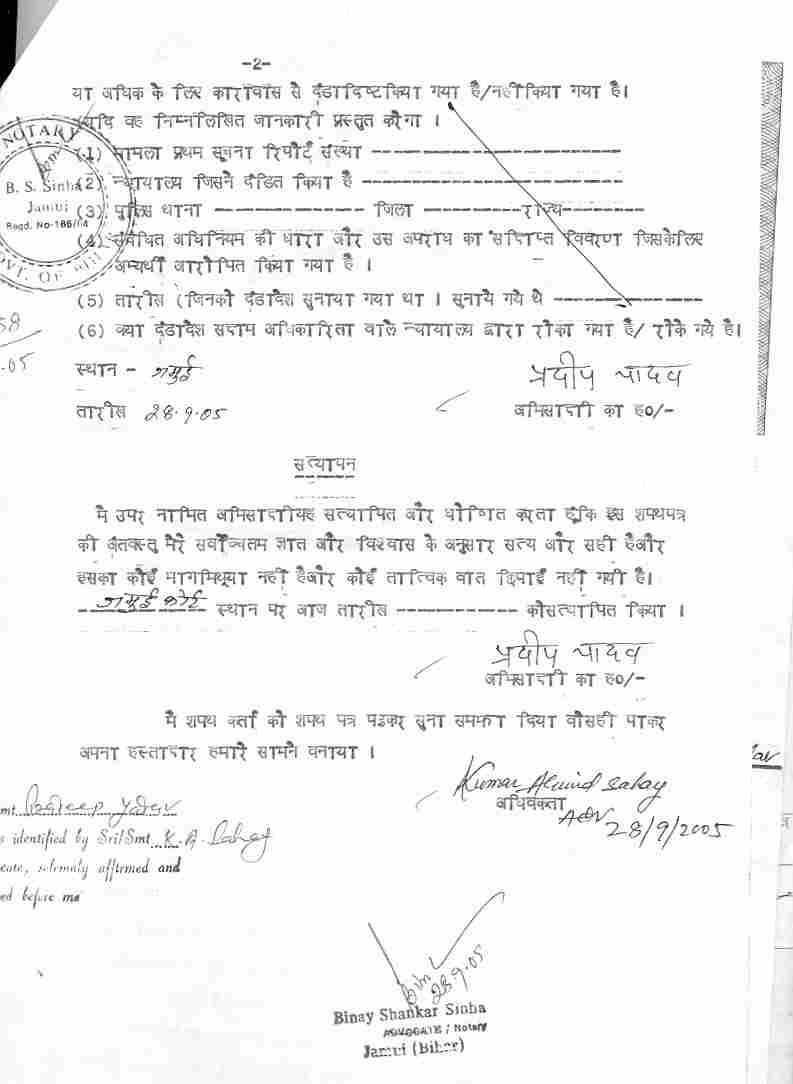 -2-
या अधिक के लिए कारावास से दंडादिष्टकिया गया है/नहीं किया गया है।
(यदि वह निम्नलिखित जानकारी प्रस्तुत करेगा ।
NOTARY
B. S. Sinha
Jamui
Regd. No-186/04
GOVT. OF BIH
(1) मामला प्रथम सूचना रिपोर्ट संख्या ----------------------
(2) न्यायालय जिसने दंडित किया है ----------------------
(3) पुलिस थाना ------------- जिला ---------राज्य--------
(4) संबंधित अधिनियम की धारा और उस अपराध का संक्षिप्त विवरण जिसकेलिए
अभ्यर्थी आरोपित किया गया है ।
(5) तारीख (जिनको दंडादेश सुनाया गया था । सुनाये गये थे -------------
(6) क्या दंडादेश सक्षम अधिकारिता वाले न्यायालय द्वारा रोका गया है/ रोके गये है।
58
.05
स्थान - जमुई
प्रदीप यादव
तारीख 28.9.05
अभिसाक्षी का ह०/-
सत्यापन
मै उपर नामित अभिसाक्षीयह सत्यापित और घोषित करता हूंकि इस शपथपत्र
की अंतवस्तु मेरे सर्वोच्चतम ज्ञात और विश्वास के अनुसार सत्य और सही हैऔर
इसका कोई भागमिथ्या नहीं हैऔर कोई तात्विक बात छिपाई नहीं गयी है।
जमुई कोर्ट स्थान पर आज तारीख ----------- कोसत्यापित किया ।
प्रदीप यादव
अभिसाक्षी का ह०/-
मै शपथ कर्ता को शपथ पत्र पढ़कर सुना समझा दिया वोसही पाकर
अपना हस्ताक्षर हमारे सामने बनाया ।
Kumar Alwind Sahay
अधिवक्ता
Adv
28/9/2005
mt Pradeep Yadav
s identified by Sri/Smt K. A. Sahay
cate, solemnly affirmed and
ed before me
28.9.05
Binay Shankar Sinha
ADVOCATE / Notary
Jamui (Bihar)